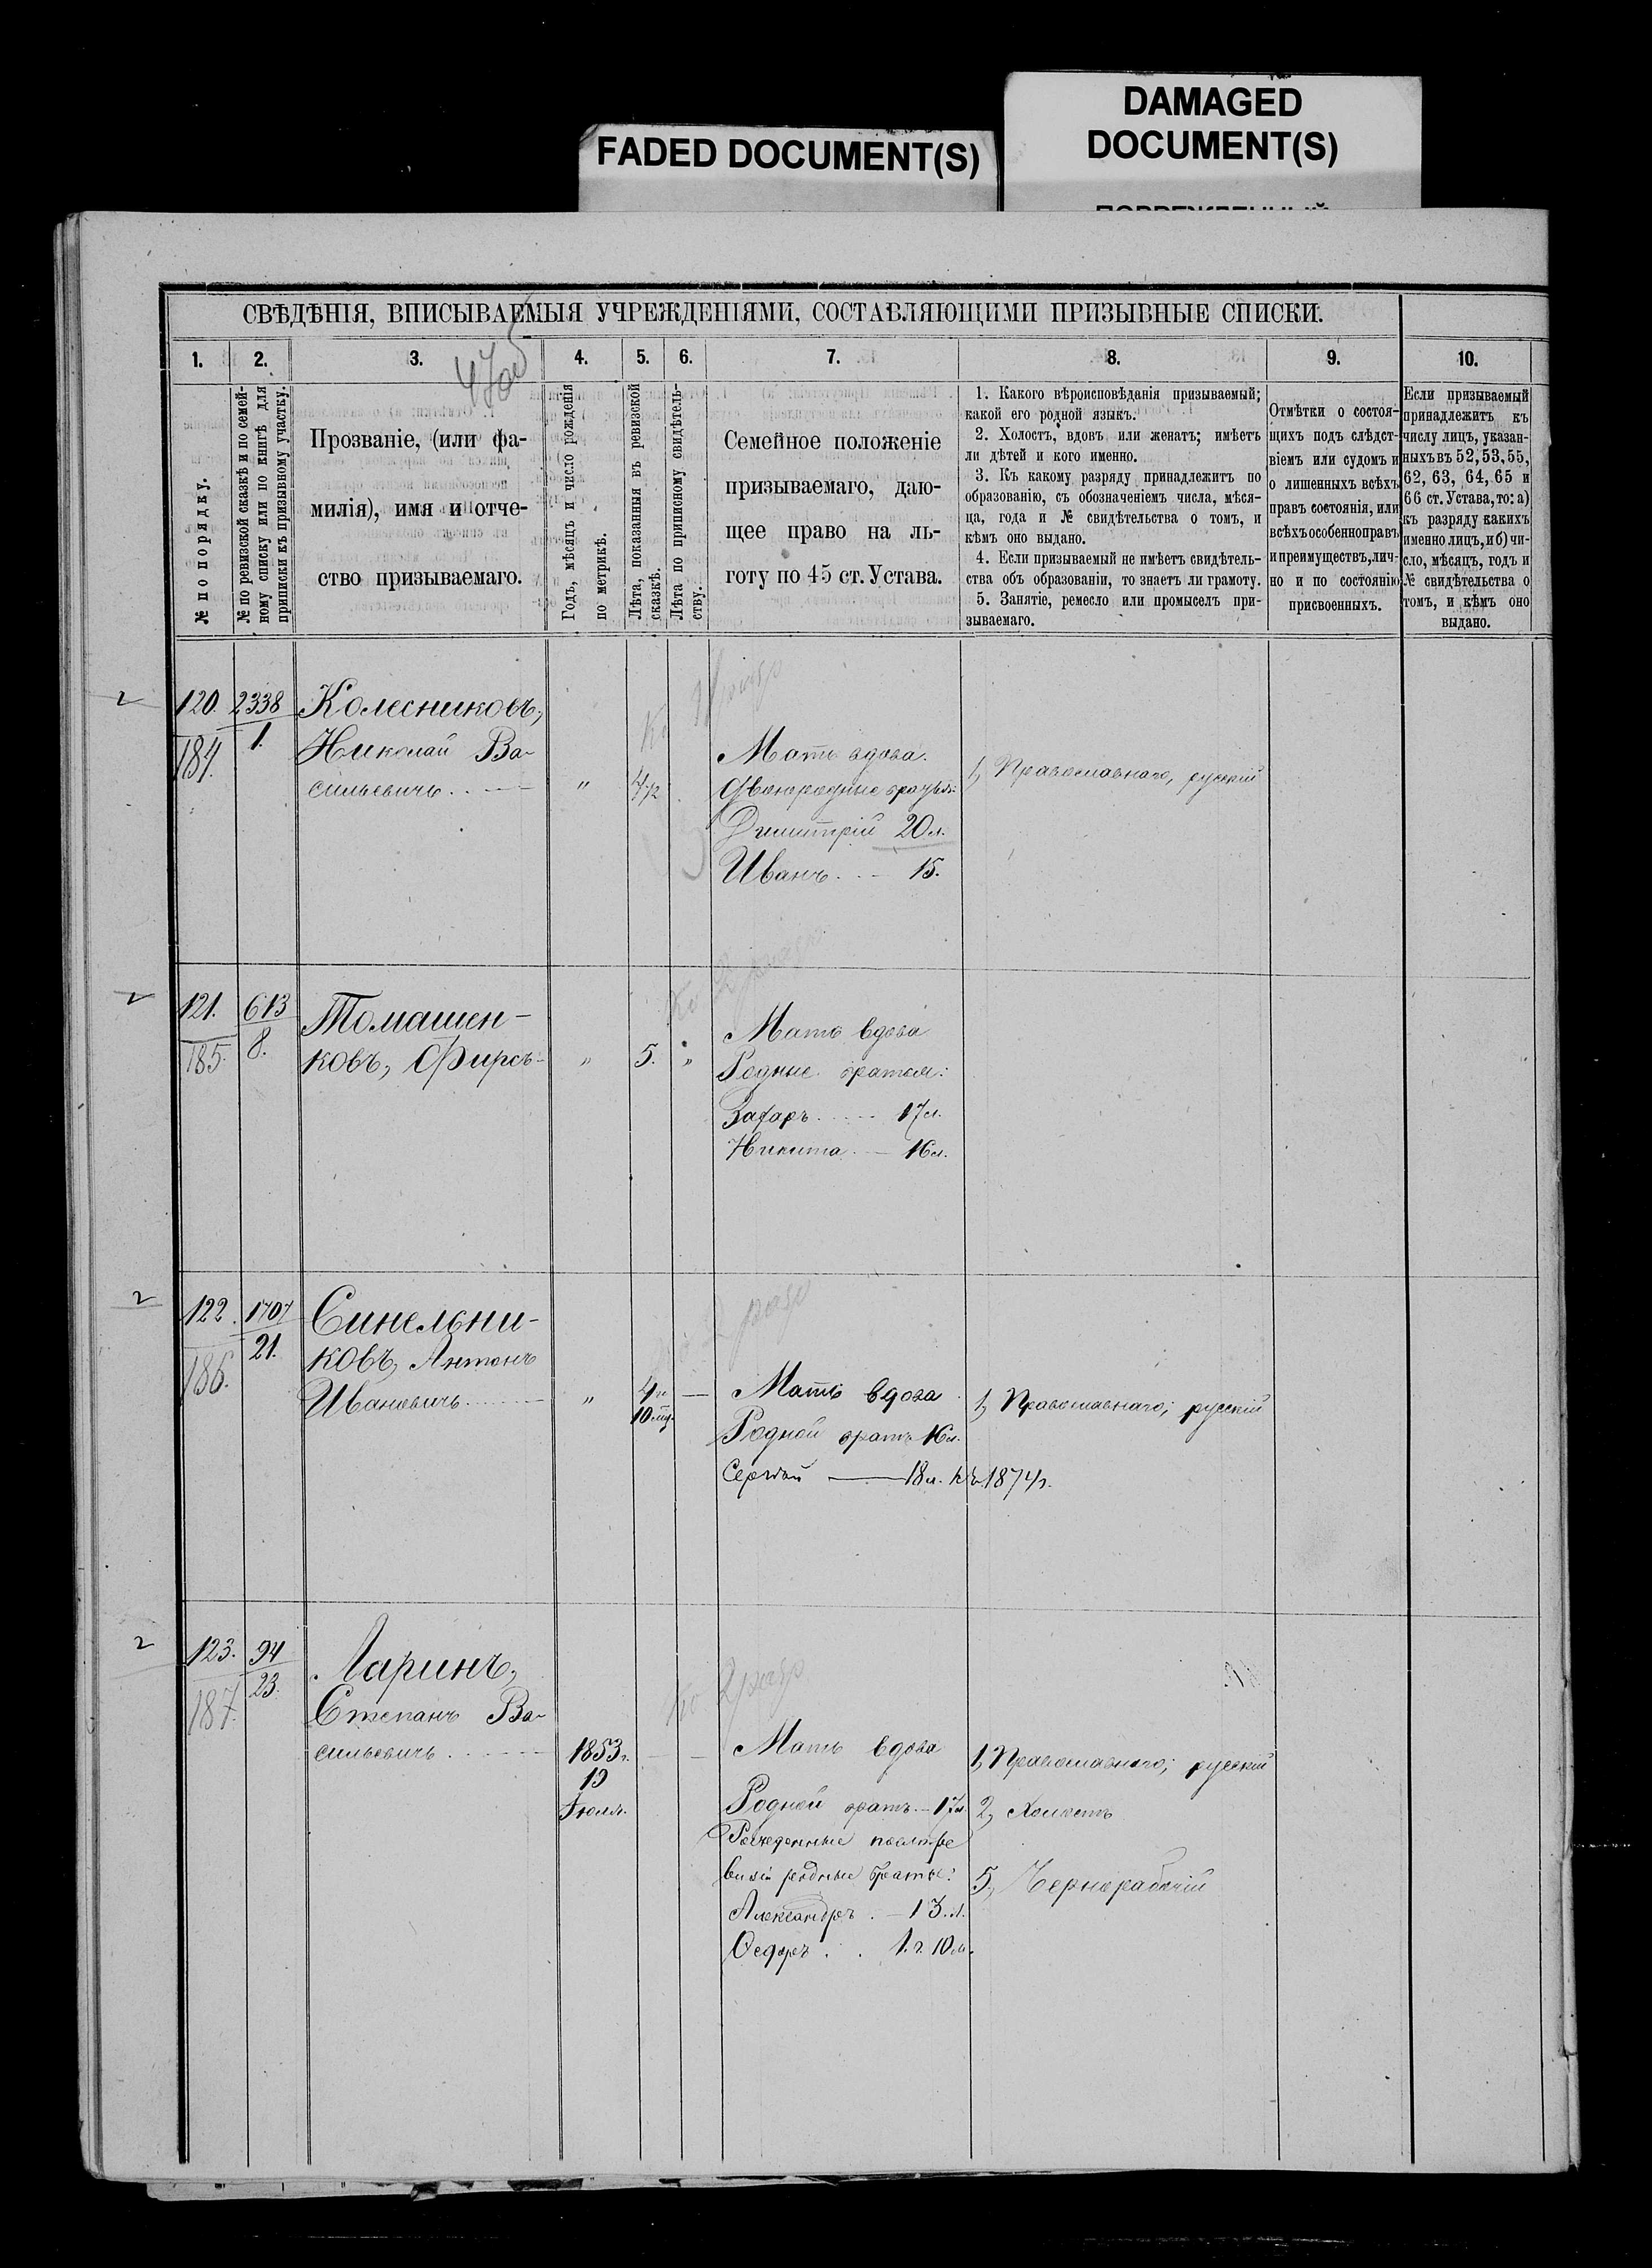 DAMAGED
DOCUMENT(S)
FADED DOCUMENT(S)
СВѢДѢНІЯ, ВПИСЫВАЕМЫЯ УЧРЕЖДЕНІЯМИ, СОСТАВЛЯЮЩИМИ ПРИЗЫВНЫЕ СПИСКИ.
1. 2. 3. 4. 5. 6. 7. 8. 9. 10.
№ по порядку.
№ по ревизской сказкѣ и по семей-
ному списку или по книгѣ для
приписки къ призывному участку.
Прозваніе, (или фа-
милія), имя и отче-
ство призываемаго.
Годъ, мѣсяцъ и число рожденія
по метрикѣ.
Лѣта, показанныя въ ревизской
сказкѣ.
Лѣта по приписному свидѣтель-
ству.
Семейное положеніе
призываемаго, даю-
щее право на ль-
готу по 45 ст. Устава.
1. Какого вѣроисповѣданія призываемый;
какой его родной языкъ.
2. Холостъ, вдовъ или женатъ; имѣетъ
ли дѣтей и кого именно.
3. Къ какому разряду принадлежитъ по
образованію, съ обозначеніемъ числа, мѣся-
ца, года и № свидѣтельства о томъ, и
кѣмъ оно выдано.
4. Если призываемый не имѣетъ свидѣтель-
ства объ образованіи, то знаетъ ли грамоту.
5. Занятіе, ремесло или промыселъ при-
зываемаго.
Отмѣтки о состоя-
щихъ подъ слѣдст-
віемъ или судомъ и
о лишенныхъ всѣхъ
правъ состоянія, или
всѣхъ особенно правъ
и преимуществъ, лич-
но и по состоянію
присвоенныхъ.
Если призываемый
принадлежитъ къ
числу лицъ, указан-
ныхъ въ 52, 53, 55,
62, 63, 64, 65 и
66 ст. Устава, то: а)
къ разряду какихъ
именно лицъ, и б) чи-
сло, мѣсяцъ, годъ и
№ свидѣтельства о
томъ, и кѣмъ оно
выдано.
2
120. 2338
184. 1.
Колесниковъ,
Николай Ва-
сильевичъ
"
Мать вдова.
Двоюродные братья:
Димитрій 20 л.
Иванъ 15.
1, Православнаго, русскій
2
121. 613
185. 8.
Томашен-
ковъ, Фирсъ
" 5. "
Мать вдова
Родные братья:
Захаръ 17 л.
Никита 16 л.
2
122. 1707
186. 21.
Синельни-
ковъ, Антонъ
Ивановичъ
" 4
10
Мать вдова
Родной братъ 16 л.
Сергѣй 18 л. 1874 г.
1, Православнаго; русскій
2
123. 94
187. 23.
Ларинъ,
Степанъ Ва-
сильевичъ
1853 г.
19
Іюля.
по 2 разр
Мать вдова
Родной братъ 17 л.
Рожденные послѣ ре
визіи родные братья:
Александръ 13. л.
Ѳедоръ 1. г. 10 м.
1, Православнаго; русскій
2, Холостъ
5, Чернорабочій